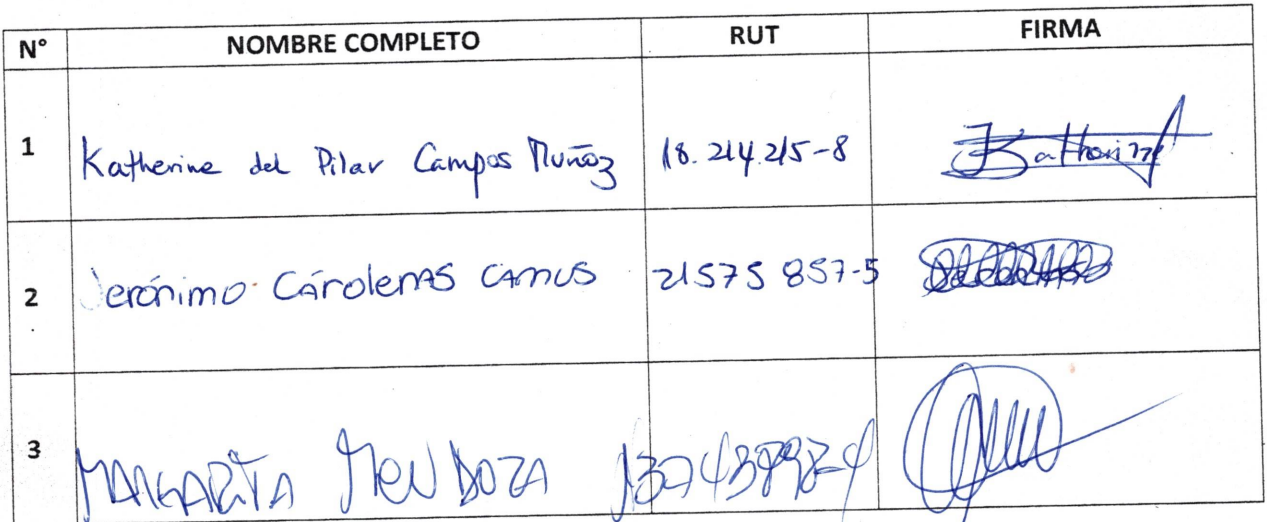 N° NOMBRE COMPLETO RUT FIRMA
1 Katherine del Pilar Campos Muñoz 18.214.215-8 Katherine
2 Jerónimo Cárdenas Camus 21575 857-5
3 MARGARITA MENDOZA